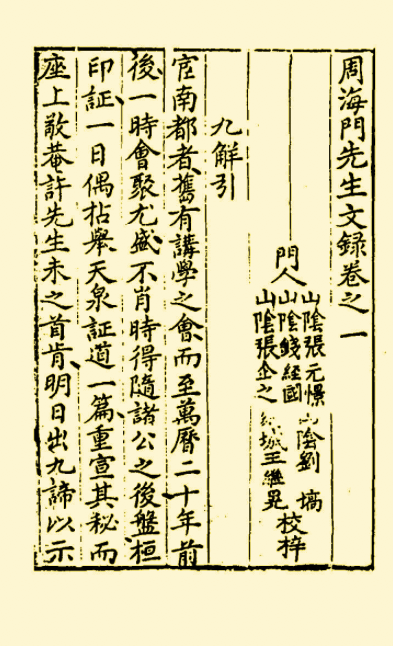 周海門先生文錄卷之一
門人
山陰張元憬
山陰錢經國
山陰張企之
山陰劉塙
城王繼晃
校梓
九解引
宦南都者舊有講學之會而至萬曆二十年前
後一時會聚尤盛不肖時得隨諸公之後盤桓
印証一日偶拈舉天泉証道一篇重宣其秘而
座上敬菴許先生未之首肯明日出九諦以示